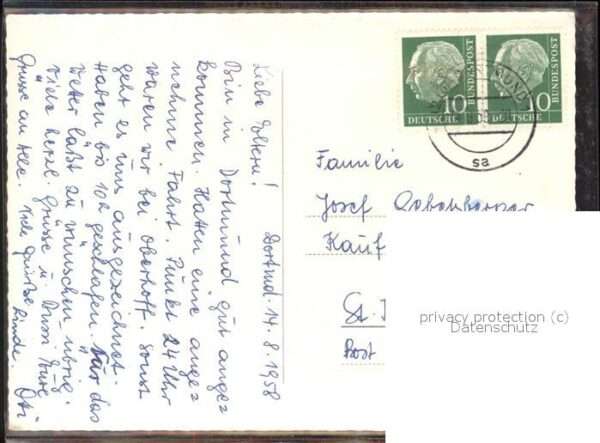 Dortmd. 14.8.1958
Liebe Eltern!
Bin in Dortmund gut ange=
kommen. Hatten eine ange=
nehme Fahrt. Punkt 24 Uhr
waren wir bei Oberhoff. Sonst
geht es uns ausgezeichnet.
Haben bis 10h geschlafen. Nur das
Wetter läßt zu wünschen übrig.
Viele herzl. Grüsse u. Eure
Grüsse an Alle. Viele Grüsse
10
DEUTSCHE
BUNDESPOST
10
DEUTSCHE
BUNDESPOST
sa
Familie
Josef
Kauf
St.
Post
privacy protection (c)
Datenschutz